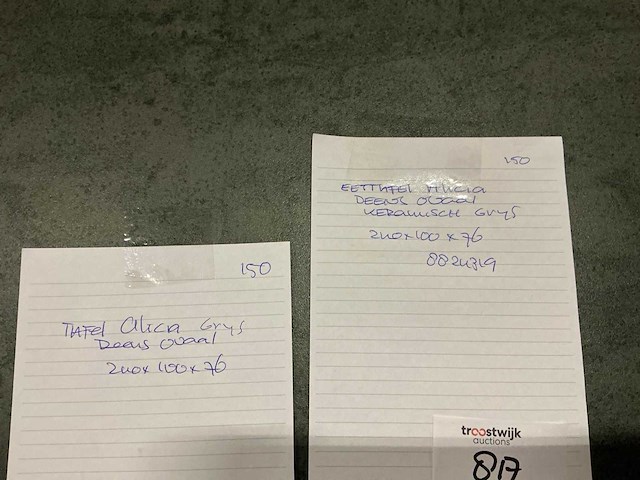 150
TAFEL Alicia Grys
Deens Ovaal
240x100x76
150
EETTAFEL Alicia
DEENS Ovaal
KERAMISCH Grys
240x100x76
8824319
troostwijk
auctions
817